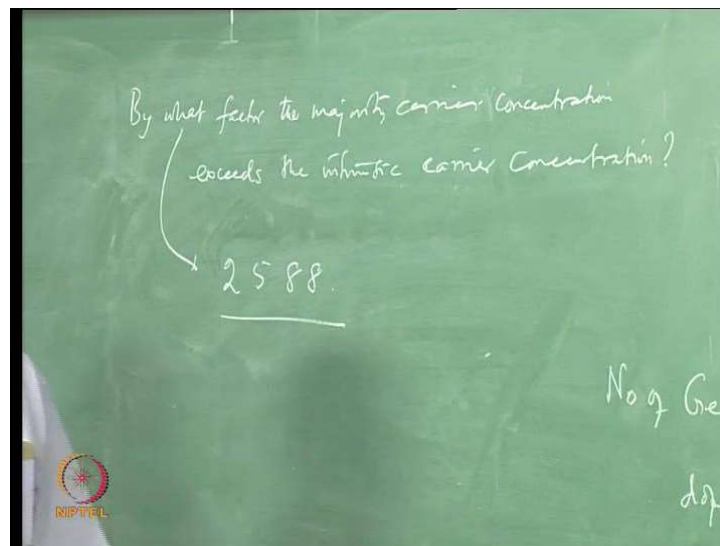 By what factor the majority carrier concentration
exceeds the intrinsic carrier concentration?
2588.
No of Ge
dop
NPTEL